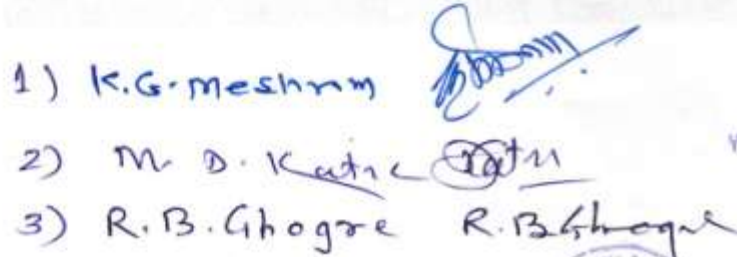 1) K.G. Meshram
2) M. D. Katre Katre
3) R.B. Ghogre R.B Ghogre